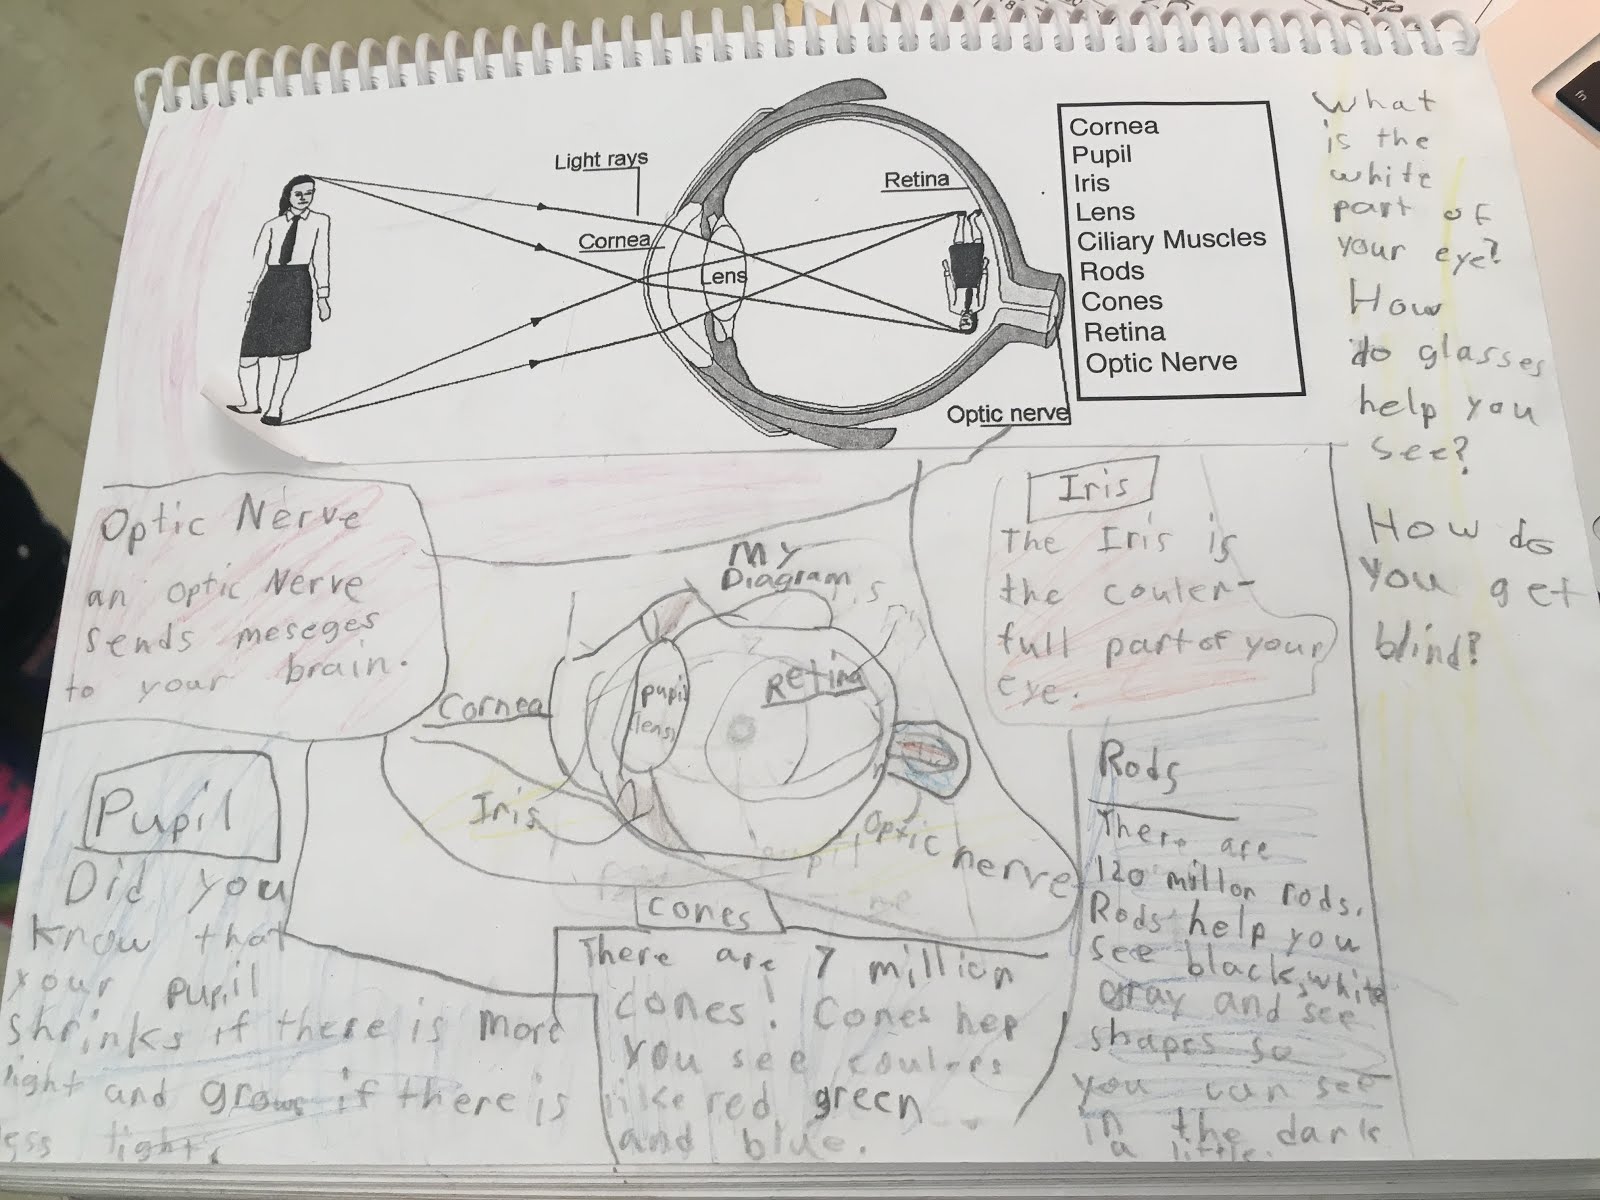 Light rays
Cornea
Lens
Retina
Optic nerve
Cornea
Pupil
Iris
Lens
Ciliary Muscles
Rods
Cones
Retina
Optic Nerve
What
is the
white
part of
your eye?
How
do glasses
help you
see?
How do
you get
blind?
Optic Nerve
an optic Nerve
sends meseges
to your brain.
My
Diagram
Cornea
pupil
lens
Retina
Iris
Optic nerve
Iris
The Iris is
the couler-
full part of your
eye.
Pupil
Did you
know that
your pupil
shrinks if there is more
light and grows if there is
less light.
cones
There are 7 million
cones! Cones hep
you see coulers
like red green
and blue.
Rods
There are
120 millon rods.
Rods help you
see black, white
gray and see
shapes so
you can see
in the dark
a little.
fn